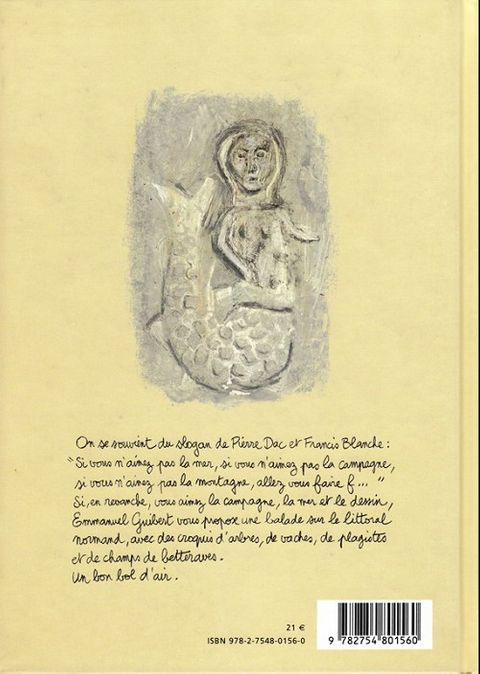 On se souvient du slogan de Pierre Dac et Francis Blanche :
"Si vous n'aimez pas la mer, si vous n'aimez pas la campagne,
si vous n'aimez pas la montagne, allez vous faire f... "
Si, en revanche, vous aimez la campagne, la mer et le dessin,
Emmanuel Guibert vous propose une balade sur le littoral
normand, avec des croquis d'arbres, de vaches, de plagistes
et de champs de betteraves.
Un bon bol d'air.
21 €
ISBN 978-2-7548-0156-0
9 782754 801560